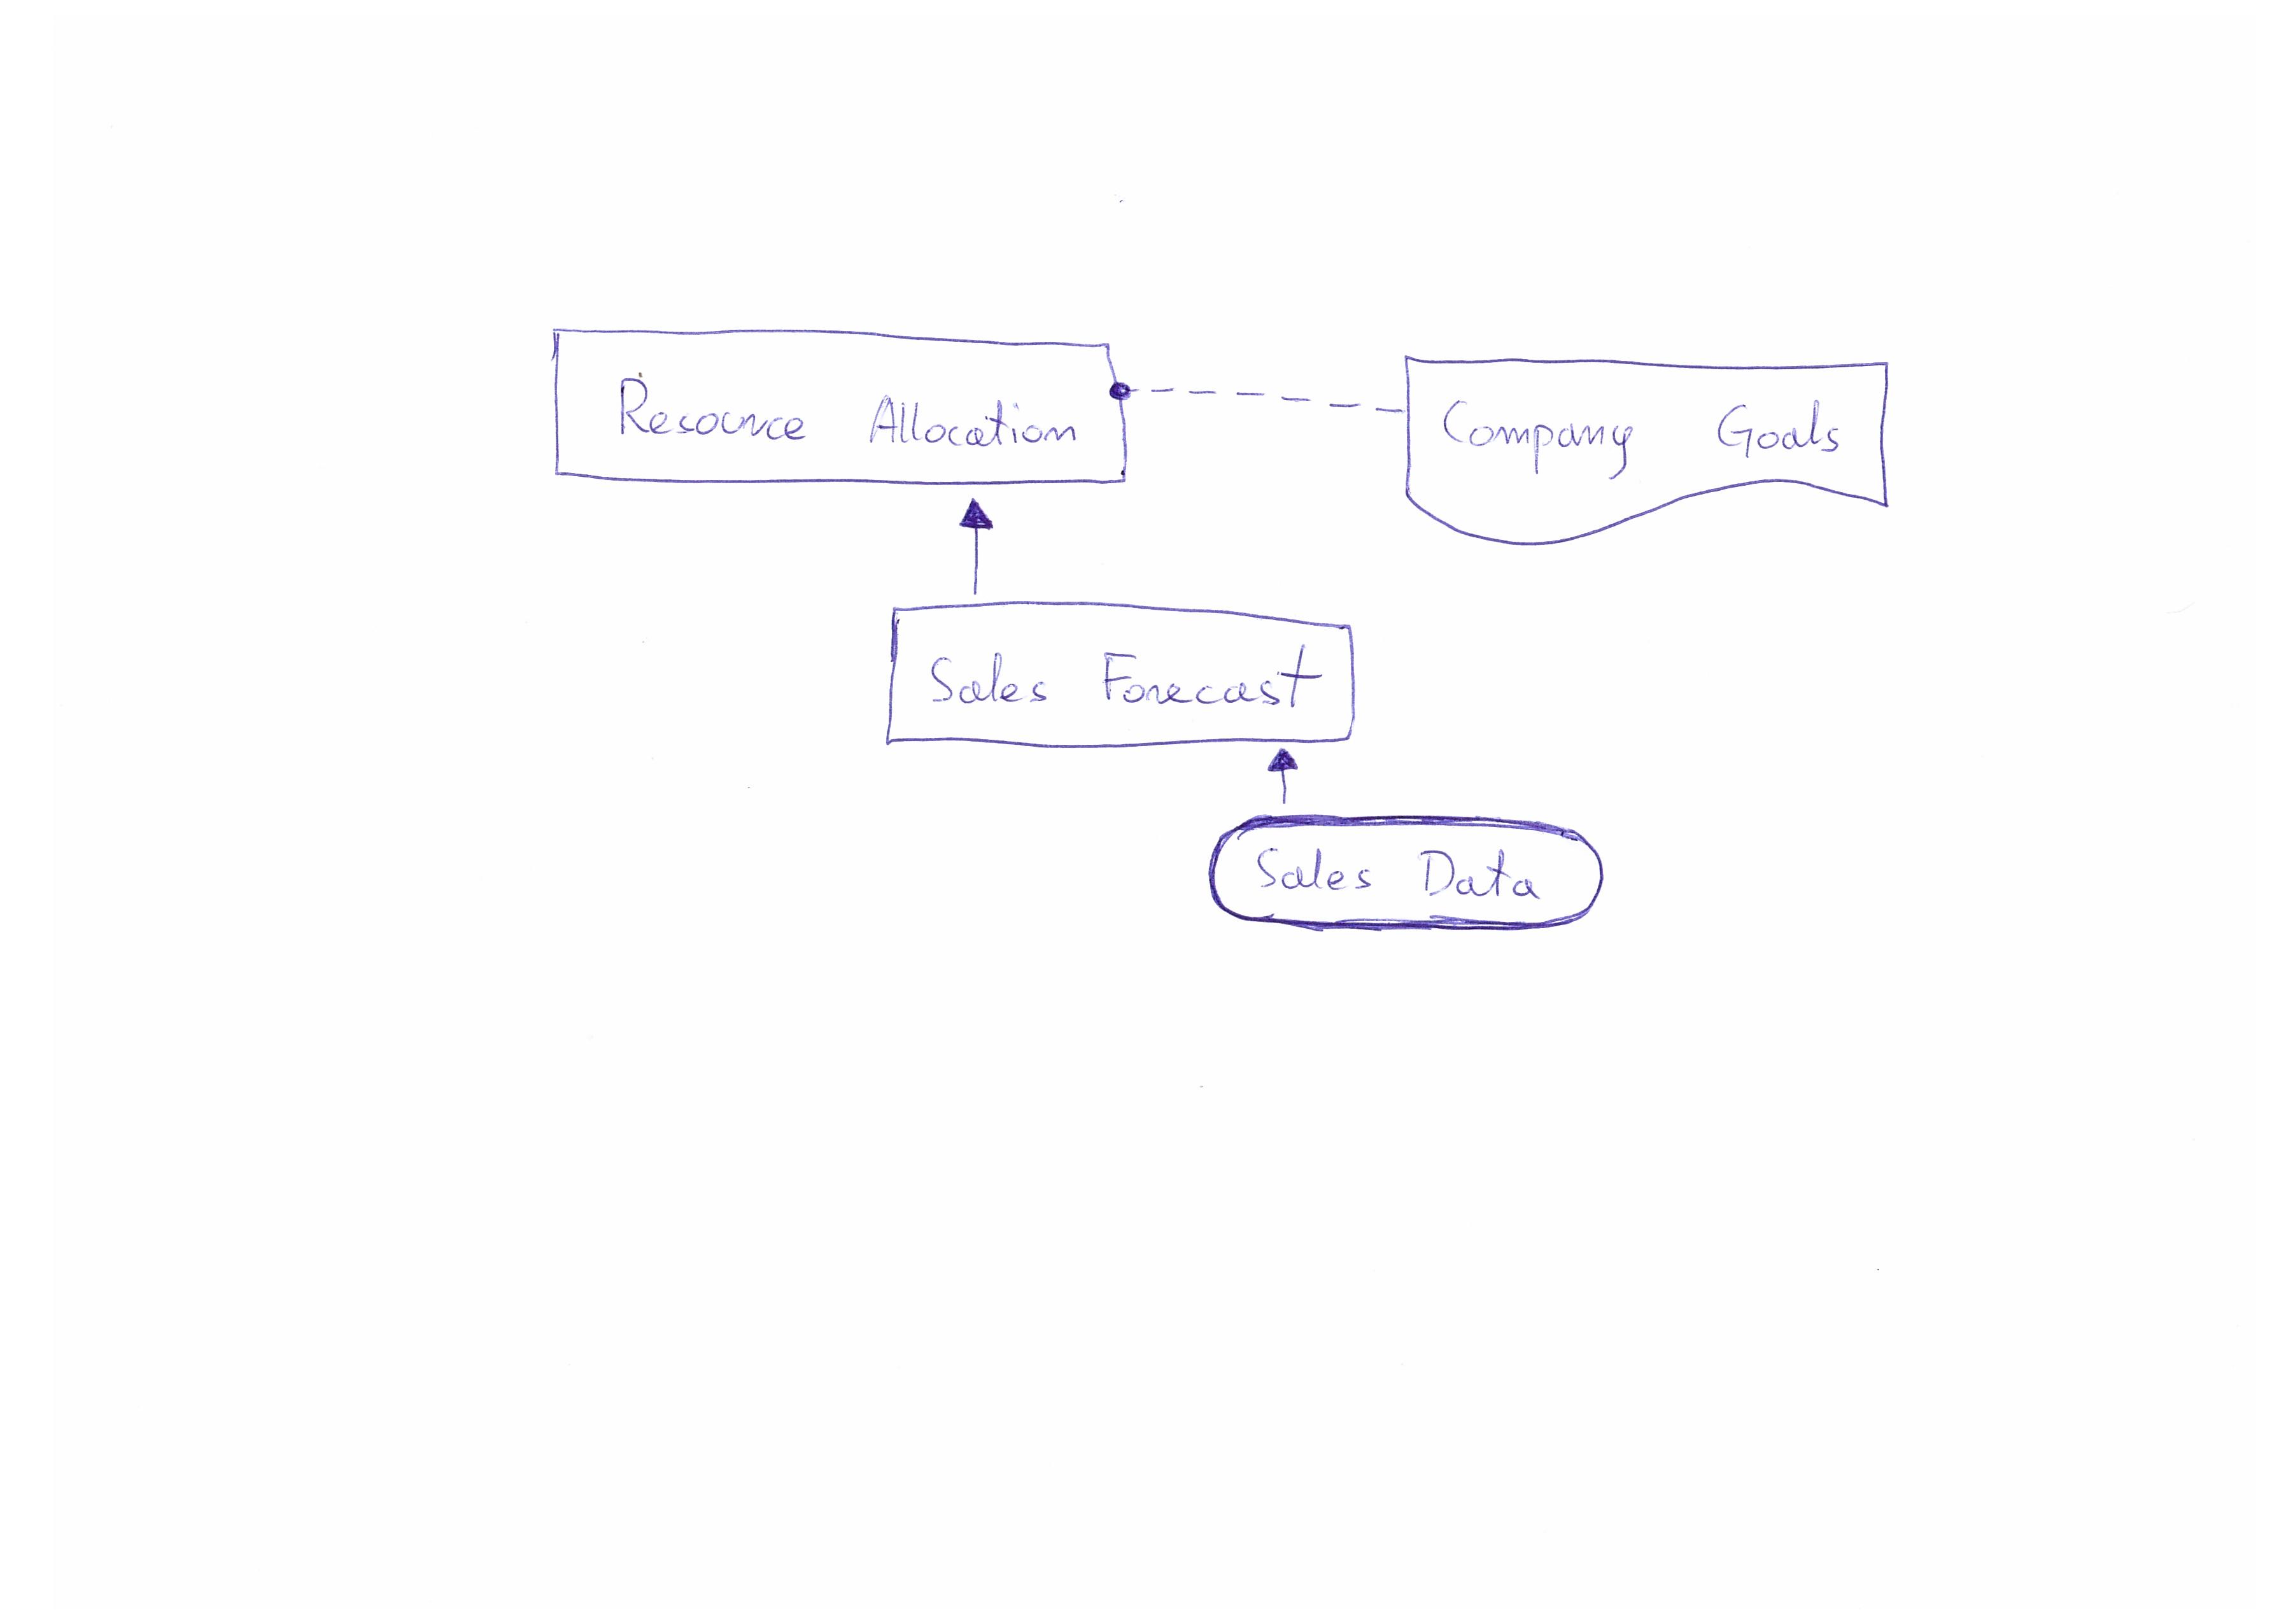 Resource Allocation
Company Goals
Sales Forecast
Sales Data